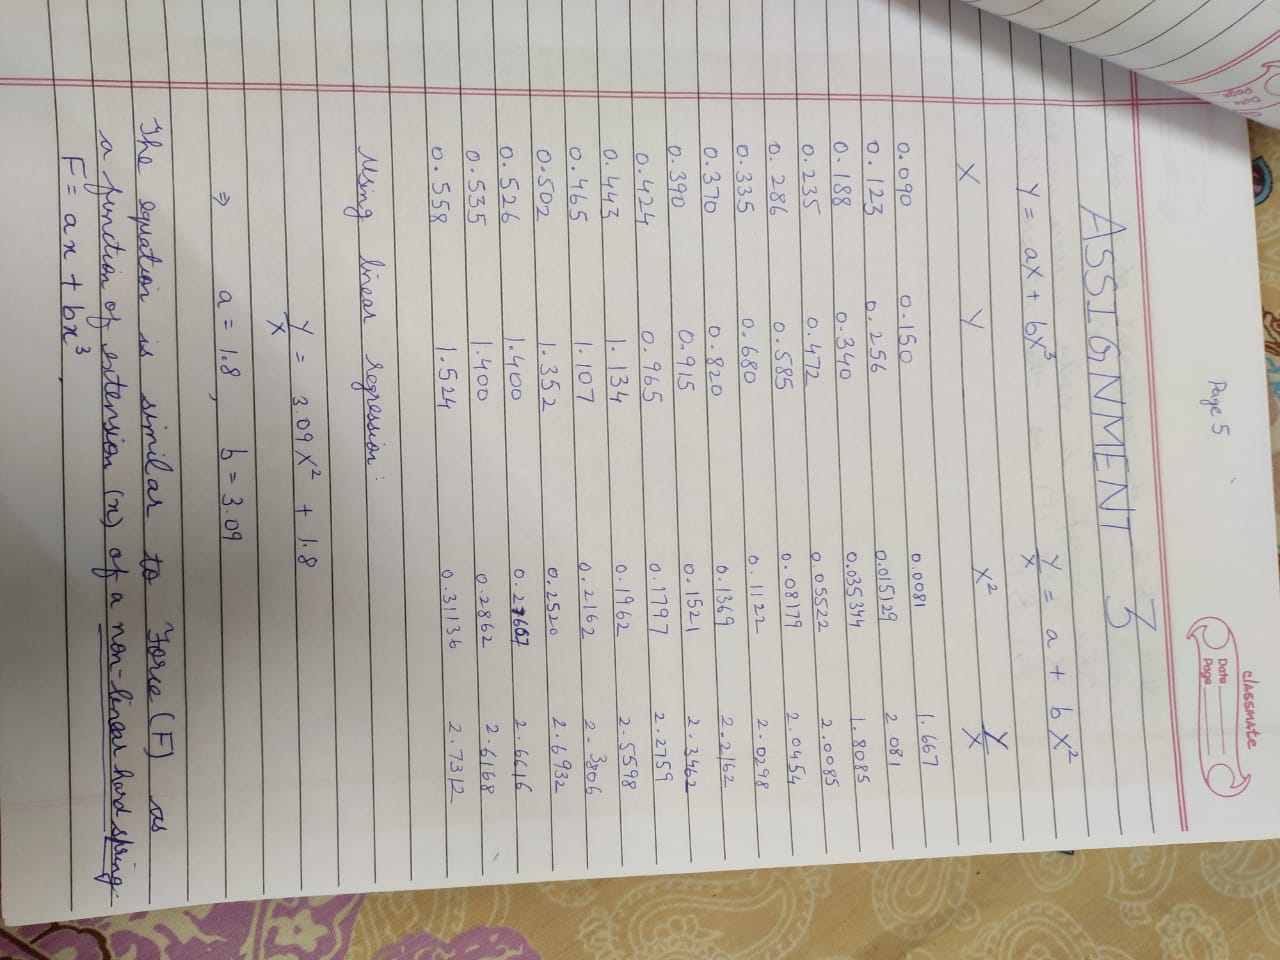 Page 5
classmate
Date
Page
ASSIGNMENT 3
Y = aX + bX³
Y/X = a + bX²
X Y X² Y/X
0.090 0.150 0.0081 1.667
0.123 0.256 0.015129 2.081
0.188 0.340 0.035344 1.8085
0.235 0.472 0.05522 2.0085
0.286 0.585 0.08179 2.0454
0.335 0.680 0.1122 2.0298
0.370 0.820 0.1369 2.2162
0.390 0.915 0.1521 2.3462
0.424 0.965 0.1797 2.2759
0.443 1.134 0.1962 2.5598
0.465 1.107 0.2162 2.3806
0.502 1.352 0.2520 2.6932
0.526 1.400 0.27667 2.6616
0.535 1.400 0.2862 2.6168
0.558 1.524 0.31136 2.7312
Using linear regression:
Y/X = 3.09X² + 1.8
⇒ a = 1.8, b = 3.09
The equation is similar to Force (F) as
a function of extension (x) of a non-linear hard spring.
F = ax + bx³.